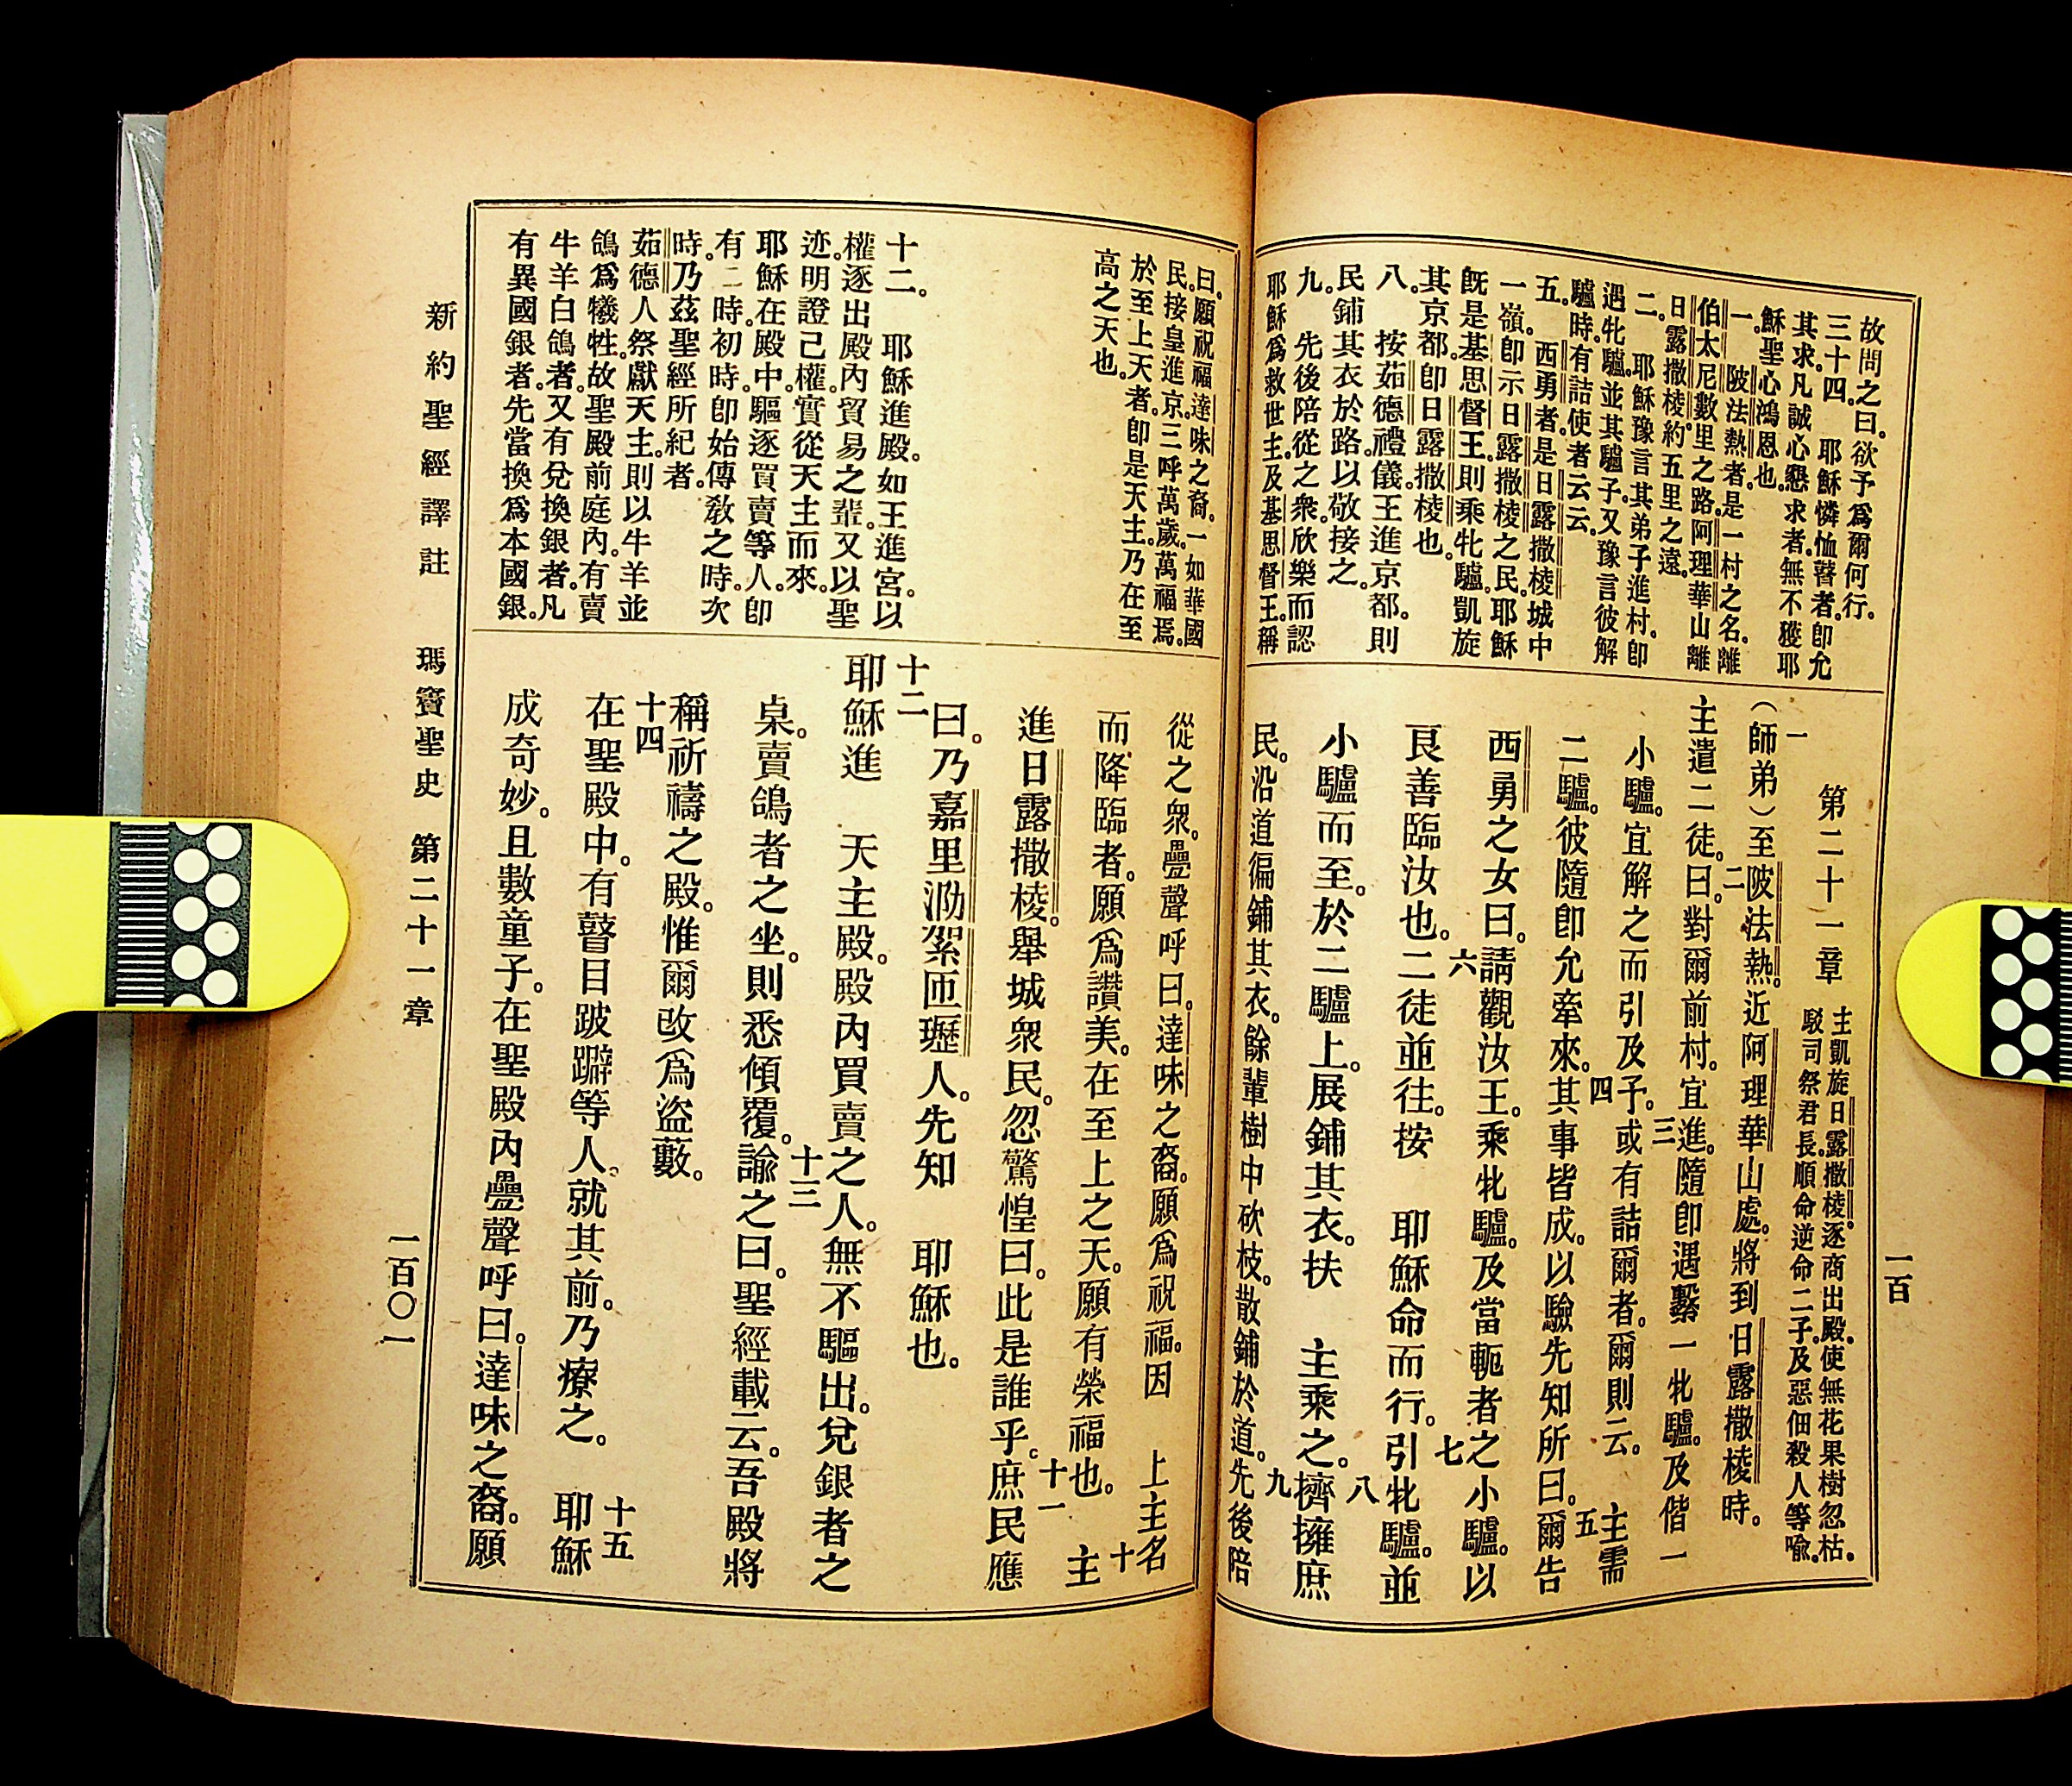 故問之曰。欲予爲爾何行。
三十四。耶穌憐恤瞽者。卽允
其求。凡誠心懇求者。無不獲耶
穌聖心鴻恩也。
一。陂法熱者。是一村之名。離
伯太尼數里之路。阿理華山離
日露撒棱約五里之遠。
二。耶穌豫言其弟子進村。卽
遇牝驢。並其驢子。又豫言彼解
驢時。有詰使者云云。
五。西勇者。是日露撒棱城中
一嶺。卽示日露撒棱之民。耶穌
旣是基思督王。則乘牝驢。凱旋
其京都。卽日露撒棱也。
八。按茹德禮儀。王進京都。則
民鋪其衣於路。以敬接之。
九。先後陪從之衆。欣樂而認
耶穌爲救世主。及基思督王。稱
第二十一章
主凱旋日露撒棱。逐商出殿。使無花果樹忽枯。
駁司祭君長。順命逆命二子。及惡佃殺人等喩。
一
（師弟）至陂法熱。近阿理華山處。將到日露撒棱時。
主遣二徒。二曰。對爾前村。宜進。三隨卽遇繫一牝驢。及偕一
小驢。宜解之而引及予。四或有詰爾者。爾則云。主需
二驢。彼隨卽允牽來。其事皆成。以驗先知所曰。五爾告
西勇之女曰。請觀汝王。乘牝驢。及當軛者之小驢。以
良善臨汝也。六二徒並往。按耶穌命而行。七引牝驢。並
小驢而至。於二驢上。展鋪其衣。扶主乘之。八擠擁庶
民。沿道徧鋪其衣。餘輩樹中砍枝。散鋪於道。九先後陪
一百
曰。願祝福達味之裔。一如華國
民。接皇進京。三呼萬歲。萬福焉。
於至上天者。卽是天主。乃在至
高之天也。
十二。耶穌進殿。如王進宮。以
權逐出殿內貿易之輩。又以聖
迹。明證己權。實從天主而來。
耶穌在殿中。驅逐買賣等人。卽
有二時。初時。卽始傳敎之時。次
時。乃茲聖經所紀者。
茹德人祭獻天主。則以牛羊並
鴿爲犧牲。故聖殿前庭內。有賣
牛羊白鴿者。又有兌換銀者。凡
有異國銀者。先當換爲本國銀。
從之衆。疊聲呼曰。達味之裔。願爲祝福。因上主名
而降臨者。願爲讚美。在至上之天。願有榮福也。十主
進日露撒棱。舉城衆民。忽驚惶曰。此是誰乎。十一庶民應
曰。乃嘉里泐絮匝瓑人。先知耶穌也。
十二
耶穌進天主殿。殿內買賣之人。無不驅出。兌銀者之
桌。賣鴿者之坐。則悉傾覆。十三諭之曰。聖經載云。吾殿將
稱祈禱之殿。惟爾改爲盜藪。
十四
在聖殿中。有瞽目跛躃等人。就其前。乃療之。十五耶穌
成奇妙。且數童子。在聖殿內疊聲呼曰。達味之裔。願
新約聖經譯註　瑪竇聖史　第二十一章　一百〇一